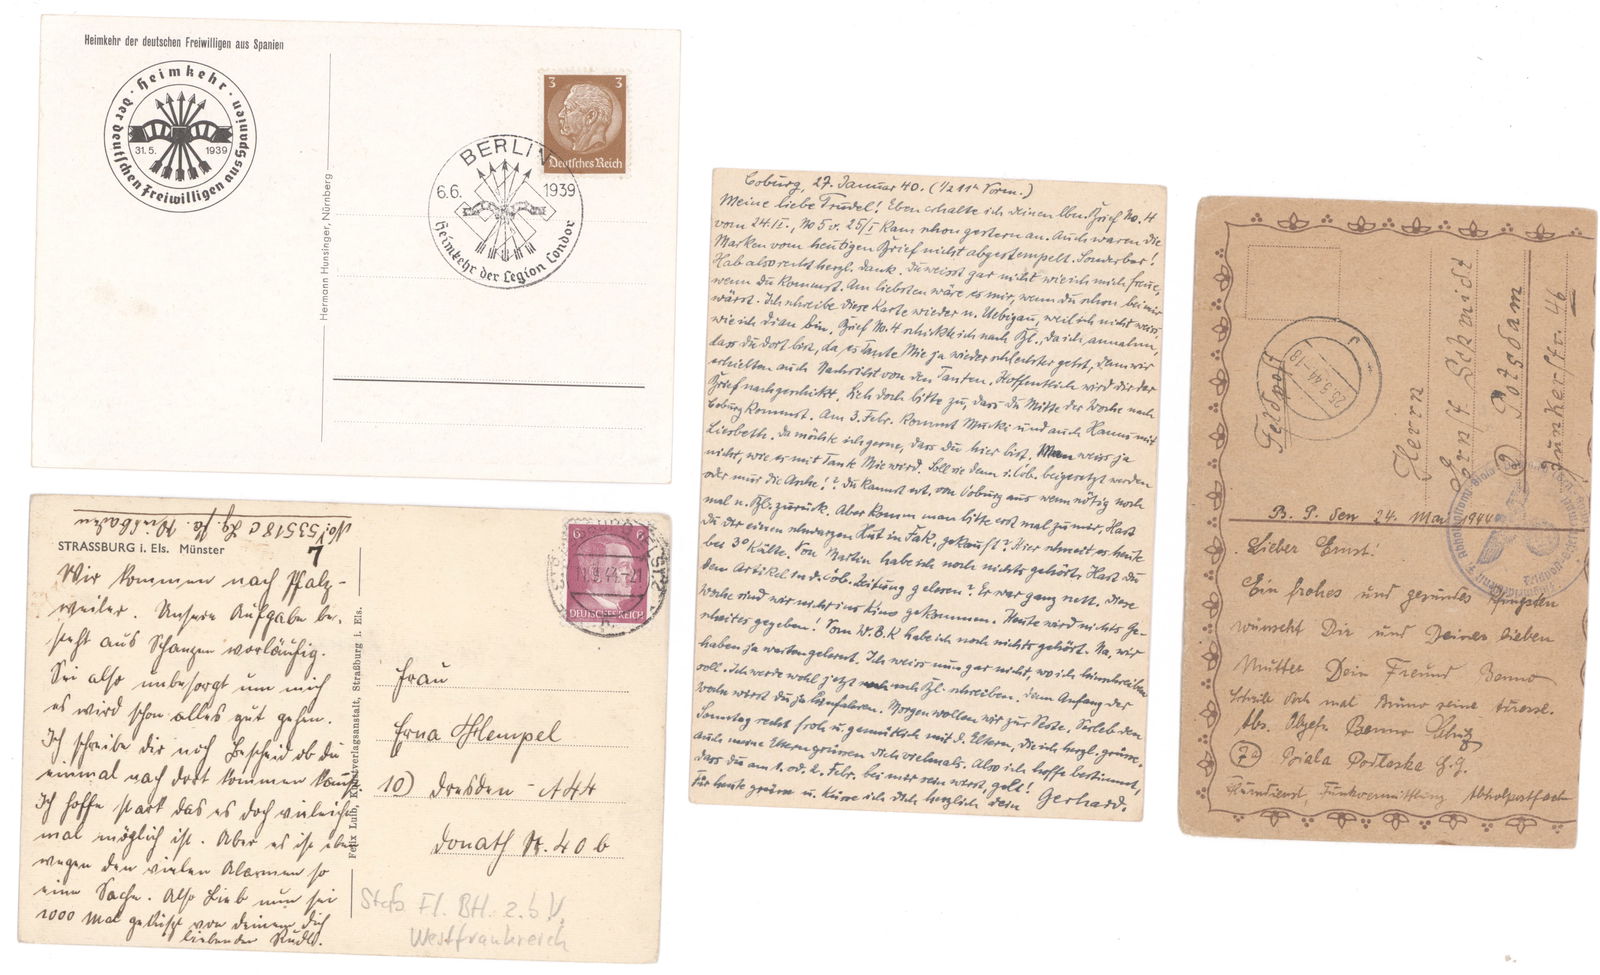 Heimkehr der deutschen Freiwilligen aus Spanien
Heimkehr
der deutschen Freiwilligen aus Spanien
31.5. 1939
Hermann Hunsinger, Nürnberg
3 3
Deutsches Reich
BERLIN
6.6. 1939
Heimkehr der Legion Condor
No! 53518 c Lg. Pa. Wiesbaden
STRASSBURG i. Els. Münster
7
Wir kommen nach Pfalz-
weiler. Unsere Aufgabe be-
steht aus Schanzen vorläufig.
Sei also unbesorgt um mich
es wird schon alles gut gehen.
Ich schreibe dir noch Bescheid ob du
einmal nach dort kommen kannst
Ich hoffe stark das es doch vieleicht
mal möglich ist. Aber es ist eben
wegen den vielen Alarmen so
eine Sache. Also Lieb nun sei
1000 Mal geküsst von deinem dich
liebenden Rudl.
Felix Luib, Kunstverlagsanstalt, Straßburg i. Els.
6 6
DEUTSCHES REICH
Frau
Erna Hempel
10) Dresden - A 44
Donath Str. 40 b
Stab Fl. BH. z.b.V.
Westfrankreich
Coburg, 27. Januar 40. (1/2 11h Vorm.)
Meine liebe Trudel! Eben erhalte ich deinen lbn. Brief No. 4
vom 24.II., No 5 v. 25/I kam schon gestern an. Auch waren die
Marken vom heutigen Brief nicht abgestempelt. Sonderbar!
Hab also recht herzl. Dank. Du weisst gar nicht wie ich mich freue,
wenn du kommst. Am liebsten wäre es mir, wenn du schon bei mir
wärst. Ich schreibe diese Karte wieder n. Uebigau, weil ich nicht weiss,
wie ich dran bin. Brief No. 4 schickte ich nach Bzl., da ich annahm,
dass du dort bist, da es Tante Mie ja wieder schlechter geht, denn wir
erhielten auch Nachricht von den Tanten. Hoffentlich wird dir der
Brief nachgeschickt. Sieh doch bitte zu, dass du Mitte der Woche nach
Coburg kommst. Am 3. Febr. kommt Mucki und auch Hanns mit
Liesbeth. Da möchte ich gerne, dass du hier bist. Man weiss ja
nicht, wie es mit Tante Mie wird. Soll sie denn i. Cob. beigesetzt werden
oder nur die Asche!? Du kannst evt. von Coburg aus wenn nötig noch
mal n. Bzl. zurück. Aber komm man bitte erst mal zu mir. Hast
du dir einen schwarzen Hut in Fak. gekauft? Hier schneit es heute
bei 3° Kälte. Von Martin habe ich noch nichts gehört. Hast du
den Artikel in d. Cob. Zeitung gelesen? Er war ganz nett. Diese
Woche sind wir nicht ins Kino gekommen. Heute wird nichts Ge-
scheites gegeben! Vom W.B.K habe ich noch nichts gehört. Na, wir
haben ja warten gelernt. Ich weiss nun gar nicht, wo ich hinschreiben
soll. Ich werde wohl jetzt nach Bzl. schreiben. Denn Anfang der
Woche wirst du ja hinfahren. Morgen wollen wir zur Veste. Verleb den
Sonntag recht froh u. gemütlich mit d. Eltern, die ich herzl. grüsse.
Auch meine Eltern grüssen dich vielmals. Also ich hoffe bestimmt,
dass du am 1. od. 2. Febr. bei mir sein wirst, gelt!
Für heute grüsse u. küsse ich dich herzlich dein Gerhard.
Feldpost
Herrn
Ernst Schmidt
2 Potsdam
Junkerstr. 46
B. P. den 24. Mai 1944
Lieber Ernst!
Ein frohes und gesundes Pfingsten
wünscht Dir und Deiner lieben
Mutter Dein Freund Benno
Schreibe doch mal Bruno seine Adresse.
Abs. Obgefr. Benno
7a Biala Podlaska G.G.
Kurierdienst, Funkvermittlung Abholpostfach